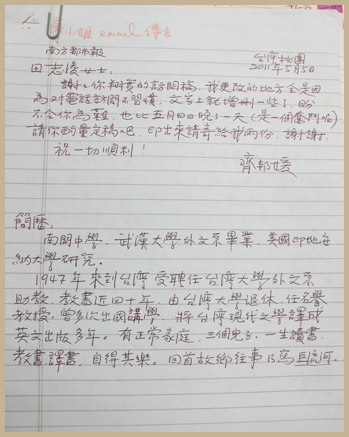 小姐 email 傳去
南方都市報
田志凌女士:
台灣桃園
2011年5月5日
謝謝你翔實的訪問稿,我更改的地方全是因
為對電話訪問不習慣,文字上就增刪一些了,盼
不令你為難,也比五月四日晚了一天(是一個奮鬥呢)
請你酌量定稿吧,印出來請寄給我兩份,謝謝.
祝一切順利!
齊邦媛
簡歷:
南開中學,武漢大學外文系畢業,美國印地安
納大學研究。
1947年來到台灣受聘任台灣大學外文系
助教,教書近四十年,由台灣大學退休,任名譽
教授,曾多次出國講學,將台灣現代文學譯成
英文出版多年。有正常家庭,三個兒子,一生讀書,
教書,譯書,自得其樂。回首故鄉往事乃寫巨流河。